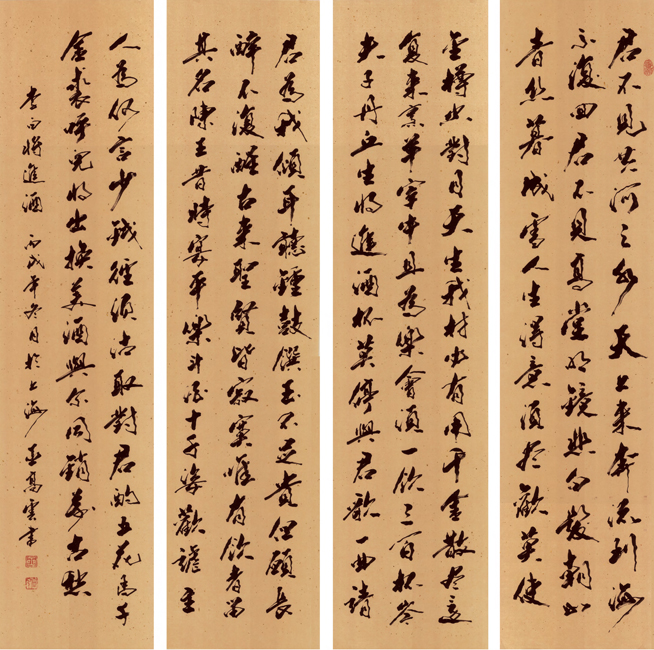 君不見黃河之水天上来奔流到海
不復回君不見高堂明鏡悲白髮朝如
青絲暮成雪人生得意須盡歡莫使
金樽空對月天生我材必有用千金散盡還
復来烹羊宰牛且為樂會須一飲三百杯岑
夫子丹丘生將進酒杯莫停與君歌一曲請
君為我傾耳聽鐘鼓饌玉不足貴但願長
醉不復醒古来聖賢皆寂寞唯有飲者留
其名陳王昔時宴平樂斗酒十千恣歡謔主
人為何言少錢徑須沽取對君酌五花馬千
金裘呼兒將出換美酒與爾同銷萬古愁
李白將進酒 丙戌年冬月於上海 高雲書